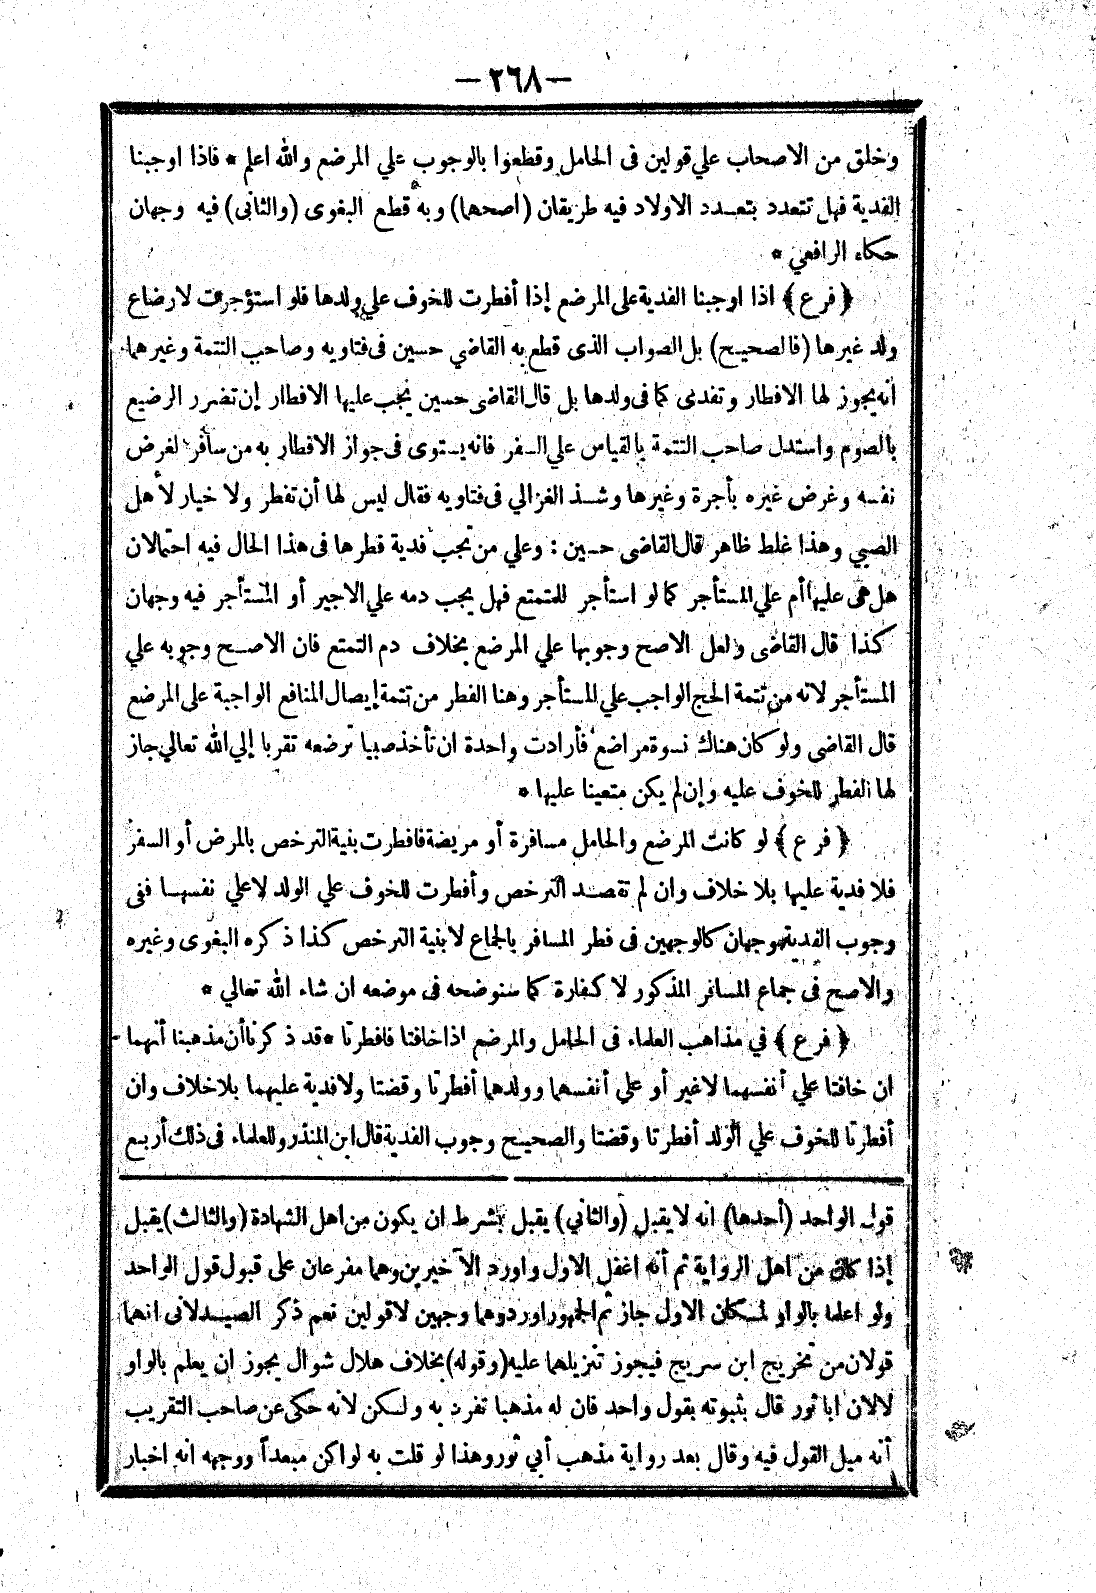 — ٢٦٨ —
وخلق من الاصحاب علي قولين فى الحامل وقطعوا بالوجوب علي المرضع والله اعلم * فاذا اوجبنا
الفدية فهل تتعدد بتعدد الاولاد فيه طريقان (اصحها) وبه قطع البغوى (والثانى) فيه وجهان
حكاء الرافعي *
﴿ فرع ﴾ اذا اوجبنا الفدية على المرضع إذا أفطرت للخوف علي ولدها فلو استؤجرت لارضاع
ولد غيرها (فالصحيح) بل الصواب الذى قطع به القاضي حسين فى فتاويه وصاحب التتمة وغيرهما
أنه يجوز لها الافطار وتفدى كما فى ولدها بل قال القاضى حسين يجب عليها الافطار إن تضرر الرضيع
بالصوم واستدل صاحب التتمة بالقياس علي السفر فانه يستوى فى جواز الافطار به من سافر لغرض
نفسه وغرض غيره بأجرة وغيرها وشذ الغزالي فى فتاويه فقال ليس لها أن تفطر ولا خيار لأهل
الصبي وهذا غلط ظاهر قال القاضى حسين : وعلي من تجب فدية فطرها فى هذا الحال فيه احتمالان
هل هى عليها أم علي المستأجر كما لو استأجر للمتمتع فهل يجب دمه علي الاجير أو المستأجر فيه وجهان
كذا قال القاضى ولعل الاصح وجوبها علي المرضع بخلاف دم التمتع فان الاصح وجوبه علي
المستأجر لانه من تتمة الحج الواجب علي المستأجر وهنا الفطر من تتمة إيصال المنافع الواجبة على المرضع
قال القاضى ولو كان هناك نسوة مراضع فأرادت واحدة ان تأخذ صبيا ترضعه تقربا إلي الله تعالي جاز
لها الفطر للخوف عليه وإن لم يكن متعينا عليها *
﴿ فرع ﴾ لو كانت المرضع والحامل مسافرة أو مريضة فافطرت بنية الترخص بالمرض أو السفر
فلا فدية عليها بلا خلاف وان لم تقصد الترخص وأفطرت للخوف علي الولد لا علي نفسها ففى
وجوب الفدية وجهان كالوجهين فى فطر المسافر بالجماع لا بنية الترخص كذا ذكره البغوى وغيره
والاصح فى جماع المسافر المذكور لا كفارة كما سنوضحه فى موضعه ان شاء الله تعالي *
﴿ فرع ﴾ في مذاهب العلماء فى الحامل والمرضع اذا خافتا فافطرتا * قد ذكرنا أن مذهبنا أنهما
ان خافتا علي أنفسهما لا غير أو علي أنفسهما وولدهما أفطرتا وقضتا ولا فدية عليهما بلا خلاف وان
أفطرتا للخوف علي الولد أفطرتا وقضتا والصحيح وجوب الفدية قال ابن المنذر وللعلماء فى ذلك أربع
قول الواحد (أحدها) انه لا يقبل (والثاني) يقبل بشرط ان يكون من اهل الشهادة (والثالث) يقبل
إذا كان من اهل الرواية ثم أنه اغفل الاول واورد الآخيرين وهما مفرعان على قبول قول الواحد
ولو اعلما بالواو لمكان الاول جاز ثم الجمهور اوردوهما وجهين لا قولين نعم ذكر الصيدلانى انهما
قولان من تخريج ابن سريج فيجوز تنزيلهما عليه (وقوله) بخلاف هلال شوال يجوز ان يعلم بالواو
لا لان ابا ثور قال بثبوته بقول واحد فان له مذهبا تفرد به ولكن لانه حكى عن صاحب التقريب
أنه ميل القول فيه وقال بعد رواية مذهب أبي ثور وهذا لو قلت به لم اكن مبعداً ووجهه انه اخبار